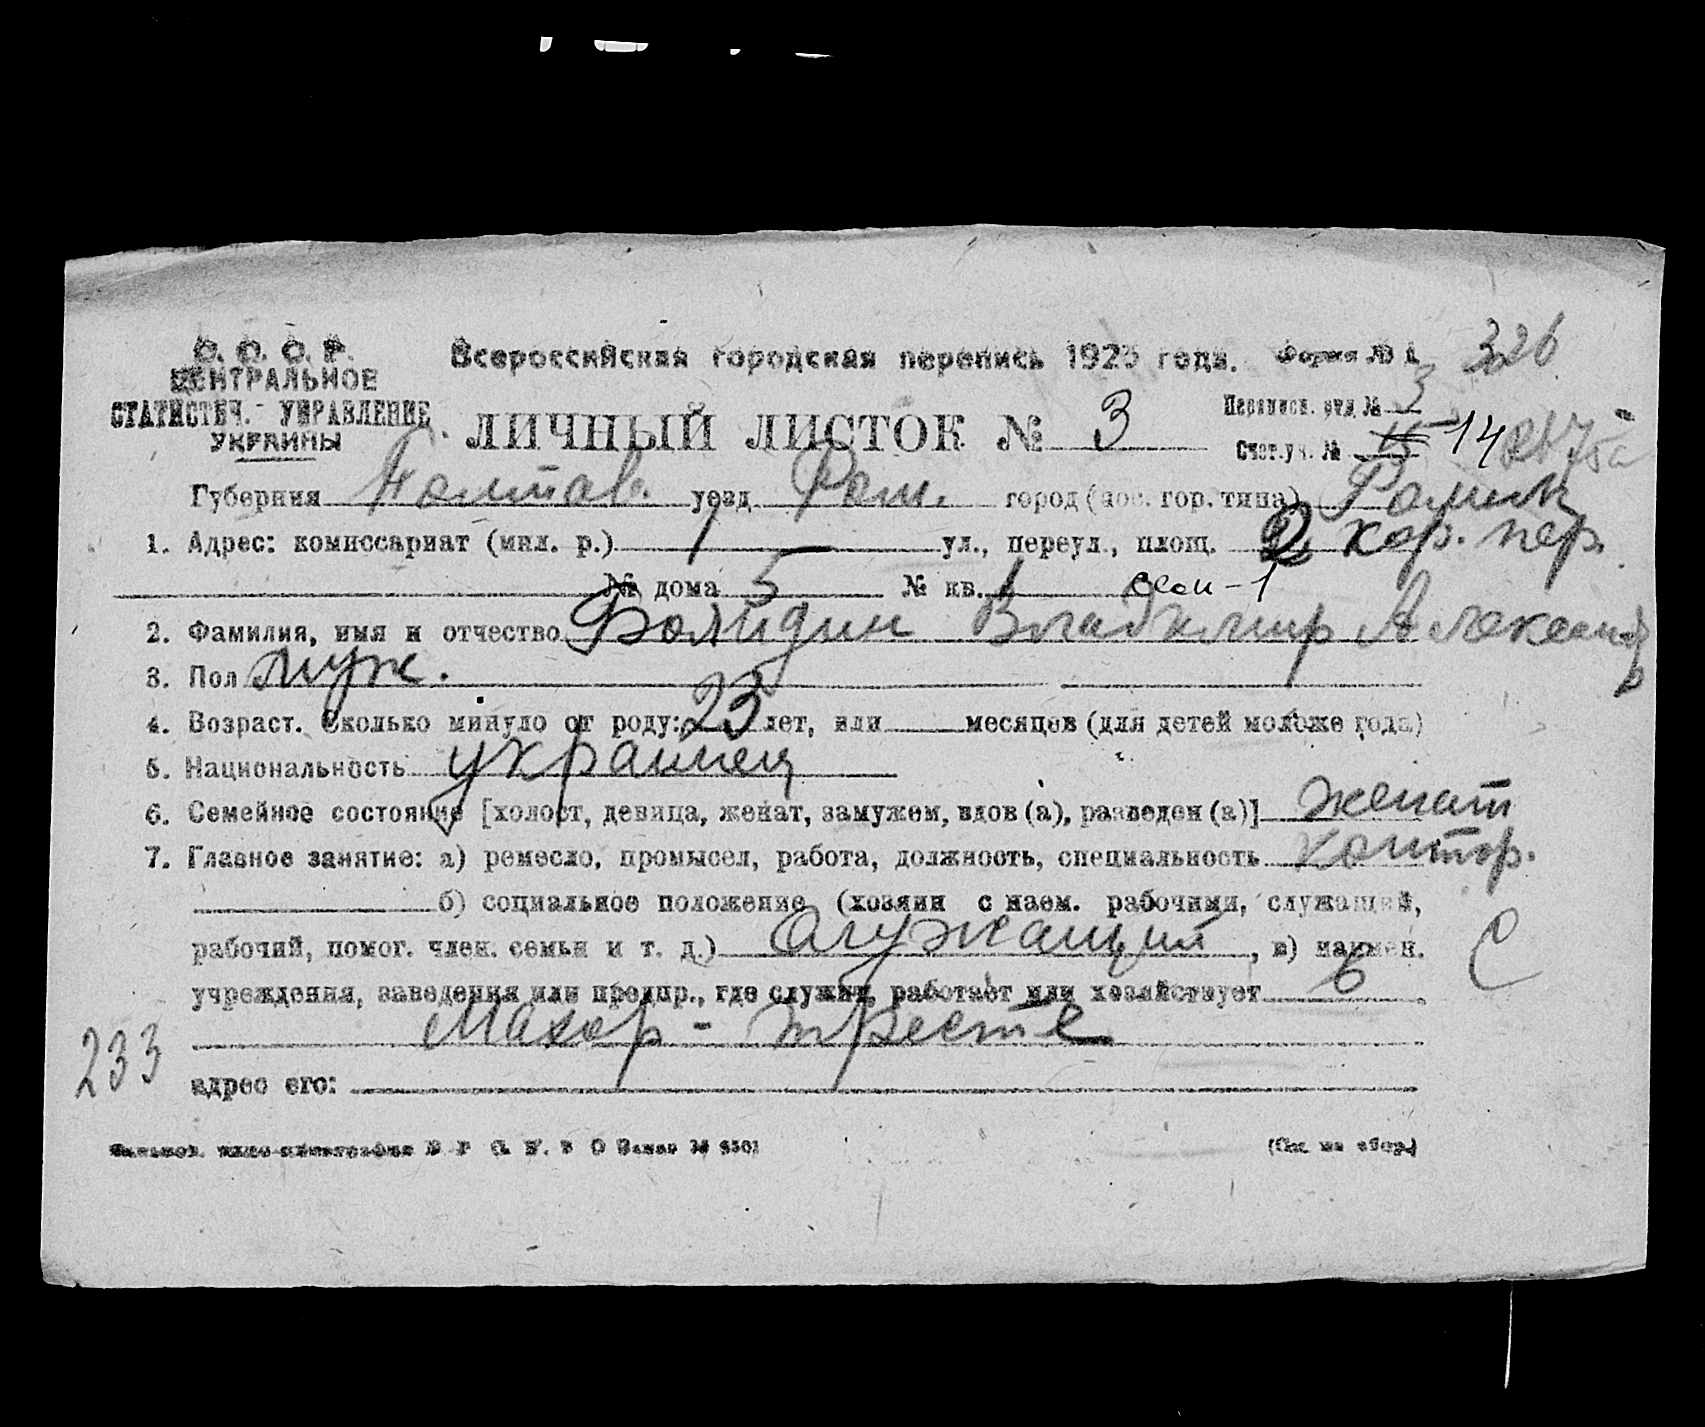 С. С. С. Р.
ЦЕНТРАЛЬНОЕ
СТАТИСТИЧ. УПРАВЛЕНИЕ
УКРАИНЫ
Всероссийская городская перепись 1923 года. Форма № 1 326
ЛИЧНЫЙ ЛИСТОК № 3
Переписн. отд № 3
Счет.уч. № 14
Губерния Полтав. уезд Ром. город (пос. гор. типа) Ромны
1. Адрес: комиссариат (мил. р.) 1 ул., переул., площ. 2 кор. пер.
№ дома 5 № кв. 1
2. Фамилия, имя и отчество Владимир Александр
3. Пол муж.
4. Возраст. Сколько минуло от роду: 23 лет, или месяцев (для детей моложе года)
5. Национальность украинец
6. Семейное состояние [холост, девица, женат, замужем, вдов (а), разведен (а)] женат
7. Главное занятие: а) ремесло, промысел, работа, должность, специальность контор.
б) социальное положение (хозяин с наем. рабочими, служащий,
рабочий, помог. член. семьи и т. д.) служащий, в) наимен.
учреждения, заведения или предпр., где служит, работает или хозяйствует в
Махор-тресте
233
адрес его:
(См. на обор.)